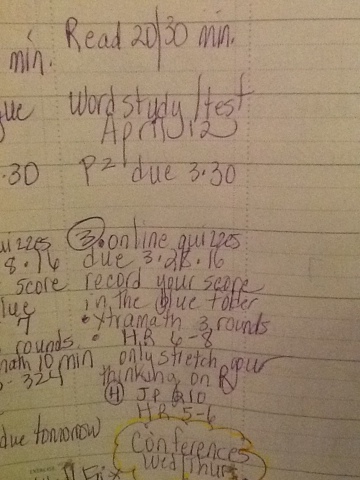 min.
Read 20/30 min.
Word study/test
April 12
.30
P² due 3.30
uizzes
③ online quizzes
8.16
due 3.28.16
score
record your score
in the blue folder
7
• Xtramath 3 rounds
rounds
• HR 6-8
math 10 min
only stretch your
324
thinking on R
Ⓗ JP
HR 5-6
due tomorrow
Conferences
Wed/Thurs